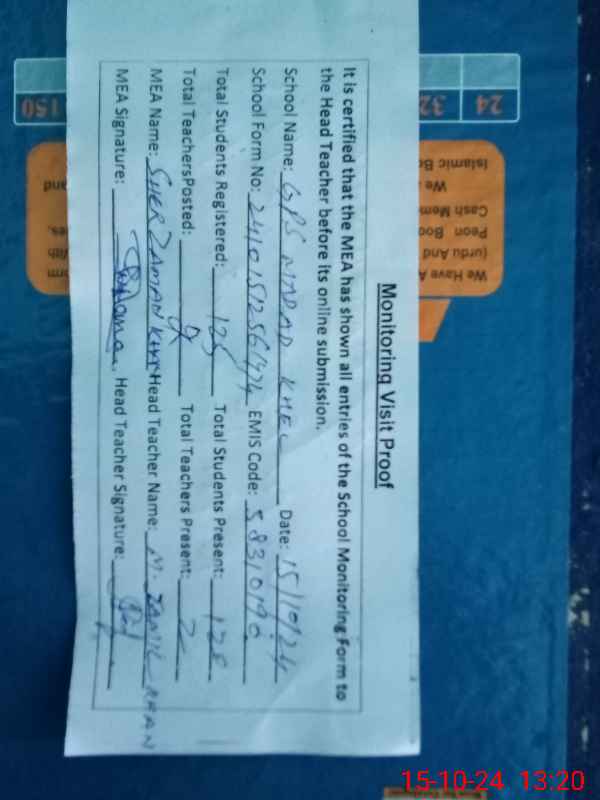 Monitoring Visit Proof
It is certified that the MEA has shown all entries of the School Monitoring Form to
the Head Teacher before its online submission.
School Name: GPS MADAD KHEL Date: 15/10/24
School Form No: EMIS Code:
Total Students Registered: 128 Total Students Present: 128
Total TeachersPosted: Total Teachers Present: 2
MEA Name: SHER ZAMAN KHAN Head Teacher Name: M. KHAN
MEA Signature: Head Teacher Signature:
24 32
150
We Have A
(urdu And
Peon Boo
Cash Mem
We
Islamic Bo
15-10-24 13:20